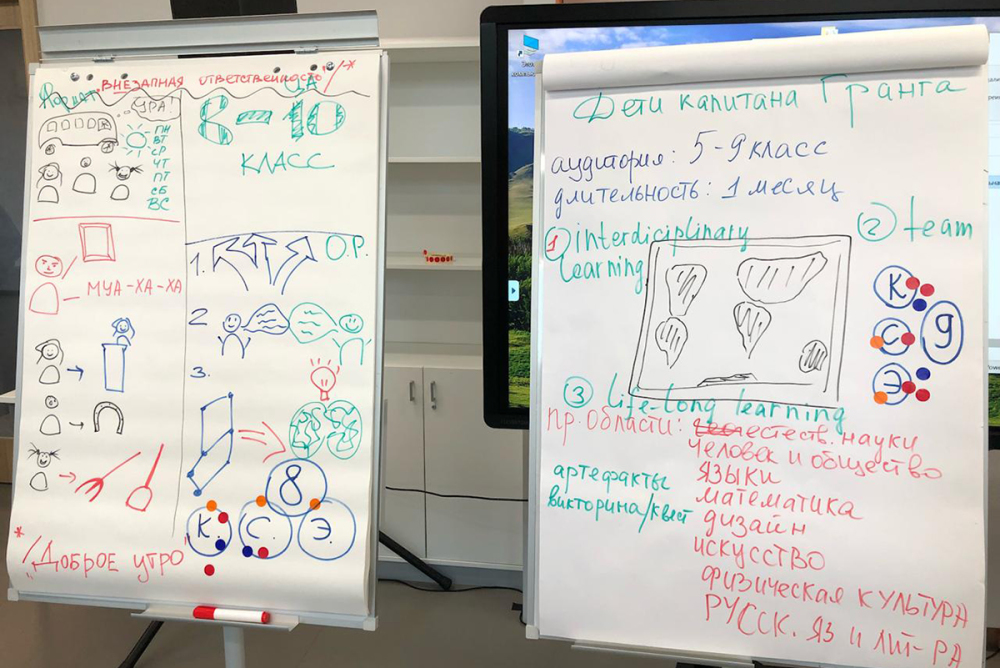 Формат "ВНЕЗАПНАЯ ОТВЕТСТВЕННОСТЬ"/*
УРА!
ПН
ВТ
СР
ЧТ
ПТ
СБ
ВС
8-10
КЛАСС
МУА-ХА-ХА
1.
О.Р.
2
3.
8
К.
С.
Э.
*/"Доброе утро"
Дети капитана Гранта
аудитория: 5-9 класс
длительность: 1 месяц
① interdiciplinary
learning
② team
К
С
Э
9
③ life-long learning
пр. области: естеств. науки
человек и общество
языки
математика
дизайн
искусство
физическая культура
РУССК. ЯЗ И ЛИТ-РА
артефакты
викторина/квест